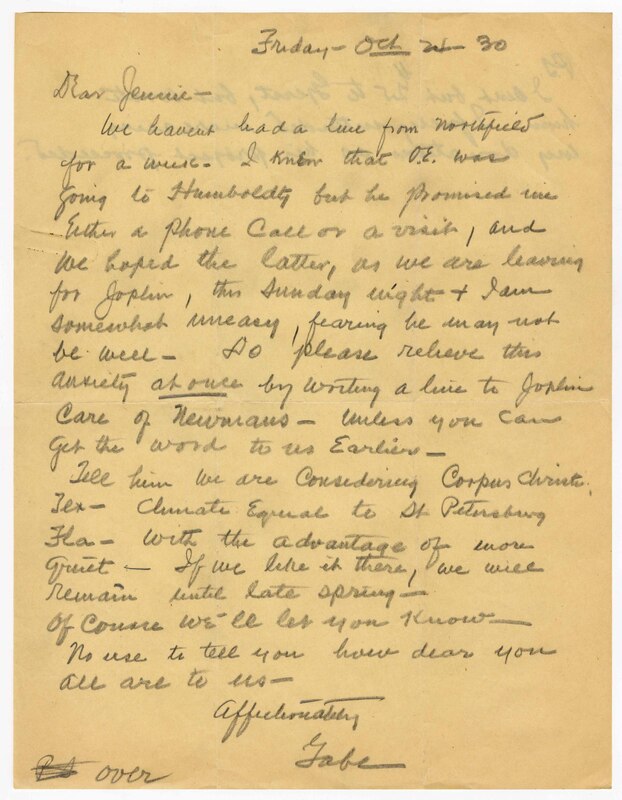 Friday - Oct 24 30
Dear Jennie -
We havent had a line from Northfield
for a week - I knew that O.E. was
going to Humboldt but he promised me
Either a phone Call or a visit, and
We hoped the latter, as we are leaving
for Joplin, this Sunday night + I am
somewhat uneasy, fearing he may not
be well - So please relieve this
anxiety at once by writing a line to Joplin
Care of Newmans - Unless you can
Get the word to us Earlier -
Tell him we are Considering Corpus Christi
Tex - Climate Equal to St Petersburg
Fla - With the advantage of more
Quiet - If we like it there, we will
Remain until late spring -
Of Course we'll let you Know -
No use to tell you how dear you
all are to us -
Affectionately
Gabe
over